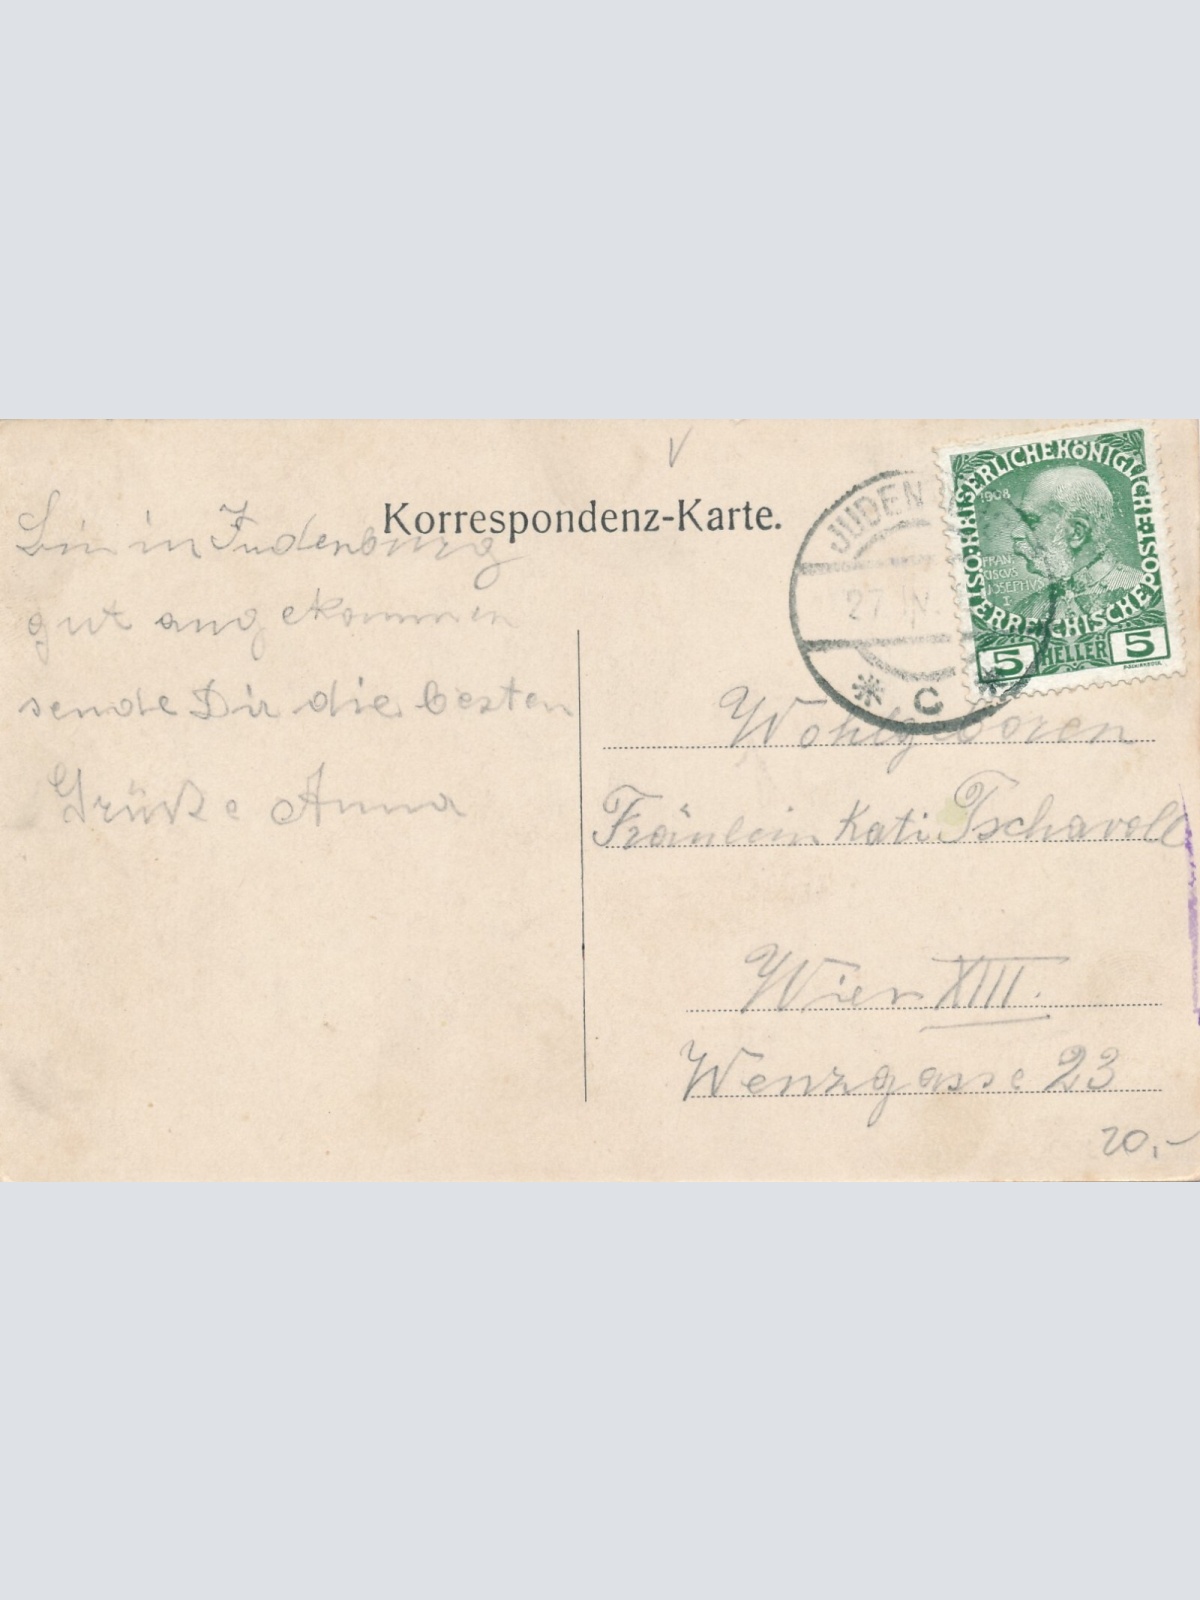 Korrespondenz-Karte.
Bin in Judenburg
gut angekommen
sende Dir die besten
Grüße Anna
JUDEN
27. IV.
* C *
KAISERLICHEKÖNIGLICHE
ÖSTERREICHISCHEPOST
1908
FRAN
CISCUS
JOSEPHUS
I
5 HELLER 5
Wohlgeboren
Fräulein Kati Tschavoll
Wien XIII.
Wenzgasse 23
20,-